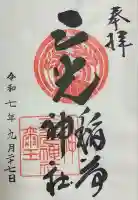 奉拝
三光稲荷
神社
令和七年九月二十七日